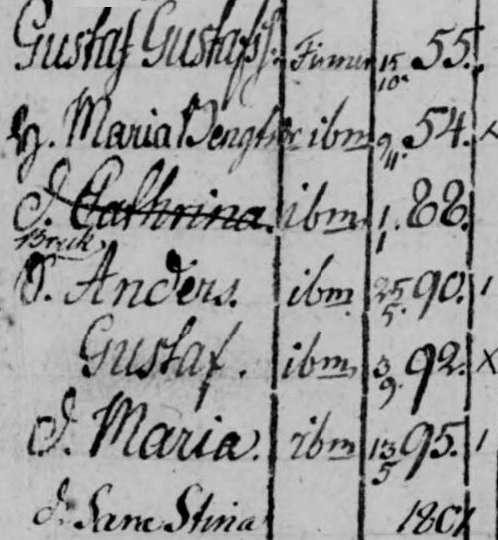 Gustaf Gustafss. Finner 15/10 55.
H. Maria Bengtsdr ibm 9/11. 54. x
D. Cathrina. ibm 1/1. 88.
Bräck
S. Anders. ibm 25/5. 90. 1
Gustaf. ibm. 3/9. 92. X
D. Maria. ibm 13/5 95. 1
d. Stina 1801